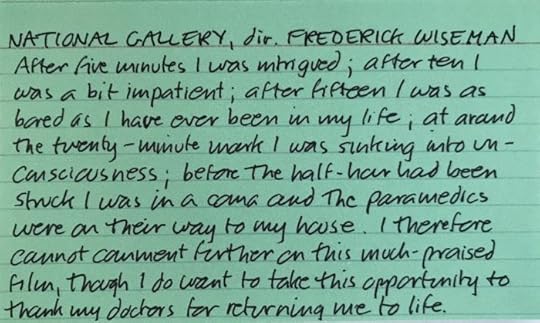 NATIONAL GALLERY, dir. FREDERICK WISEMAN
After five minutes I was intrigued; after ten I
was a bit impatient; after fifteen I was as
bored as I have ever been in my life; at around
the twenty-minute mark I was sinking into un-
consciousness; before the half-hour had been
struck I was in a coma and the paramedics
were on their way to my house. I therefore
cannot comment further on this much-praised
film, though I do want to take this opportunity to
thank my doctors for returning me to life.